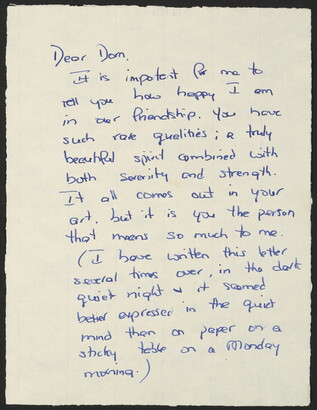 Dear Dom,
It is impotent for me to
tell you how happy I am
in our friendship. You have
such rare qualities; a truly
beautiful spirit combined with
both serenity and strength.
It all comes out in your
art, but it is you the person
that means so much to me.
(I have written this letter
several times over, in the dark
quiet night & it seemed
better expressed in the quiet
mind than on paper on a
sticky table on a Monday
morning.)